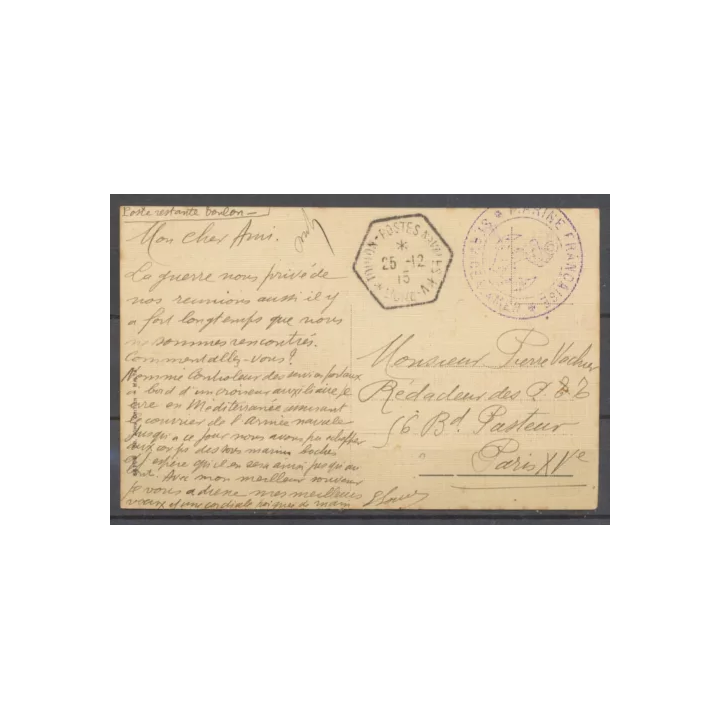 Poste restante Toulon —
Mon cher Ami.
La guerre nous prive de
nos reunions aussi il y
a fort longtemps que nous
ne sommes rencontrés.
Comment allez-vous?
Nommé Controleur des services postaux
a bord d'un croiseur auxiliaire je
erre en Méditerranée assurant
le courrier de l'Armée navale
Jusqu'a ce jour nous avons pu échapper
aux corps des sous marins boches
et j'espère qu'il en sera ainsi jusqu'au
bout. Avec mon meilleur souvenir
je vous adresse mes meilleurs
voeux et une cordiale poignée de main
TOULON-POSTES NAVALES
25 -12
15
LIGNE-A
MARINE FRANÇAISE
Monsieur Pierre Vacher
Rédacteur des
56 Bd Pasteur
Paris XVe